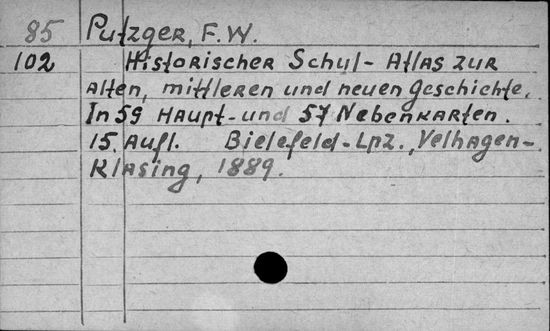 85 Putzger, F.W.
102 Historischer Schul-Atlas zur
alten, mittleren und neuen Geschichte.
In 59 Haupt- und 57 Nebenkarten.
15. Aufl. Bielefeld-Lpz., Velhagen-
Klasing, 1889.